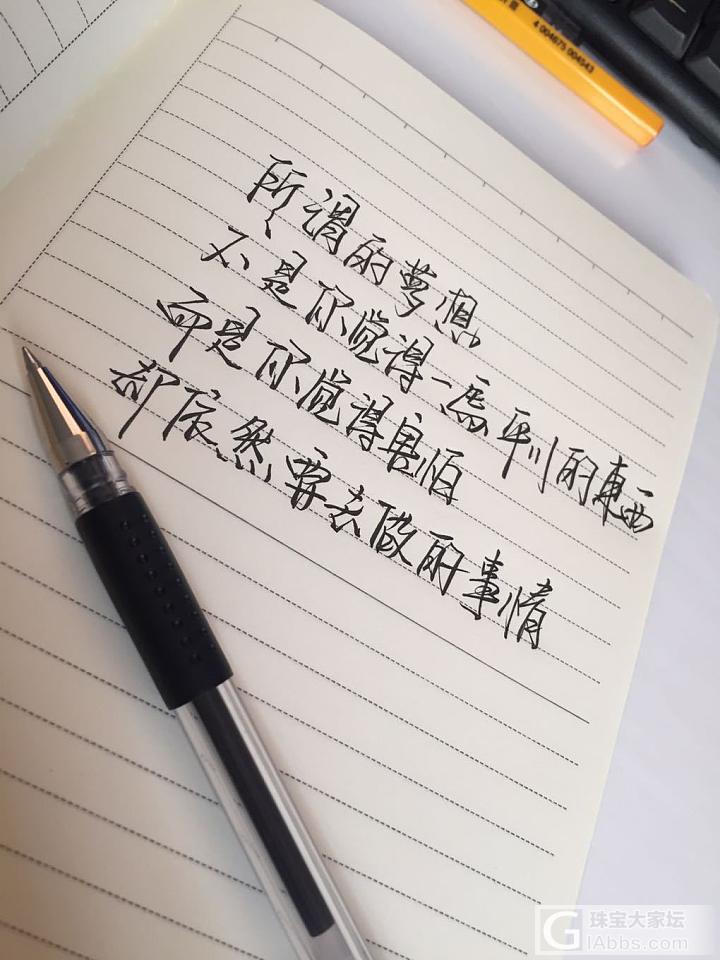 4 004675 004543
所谓的梦想
不是你觉得一馬平川的東西
而是你觉得害怕
却依然要去做的事情
G 珠宝大家坛
IAbbs.com